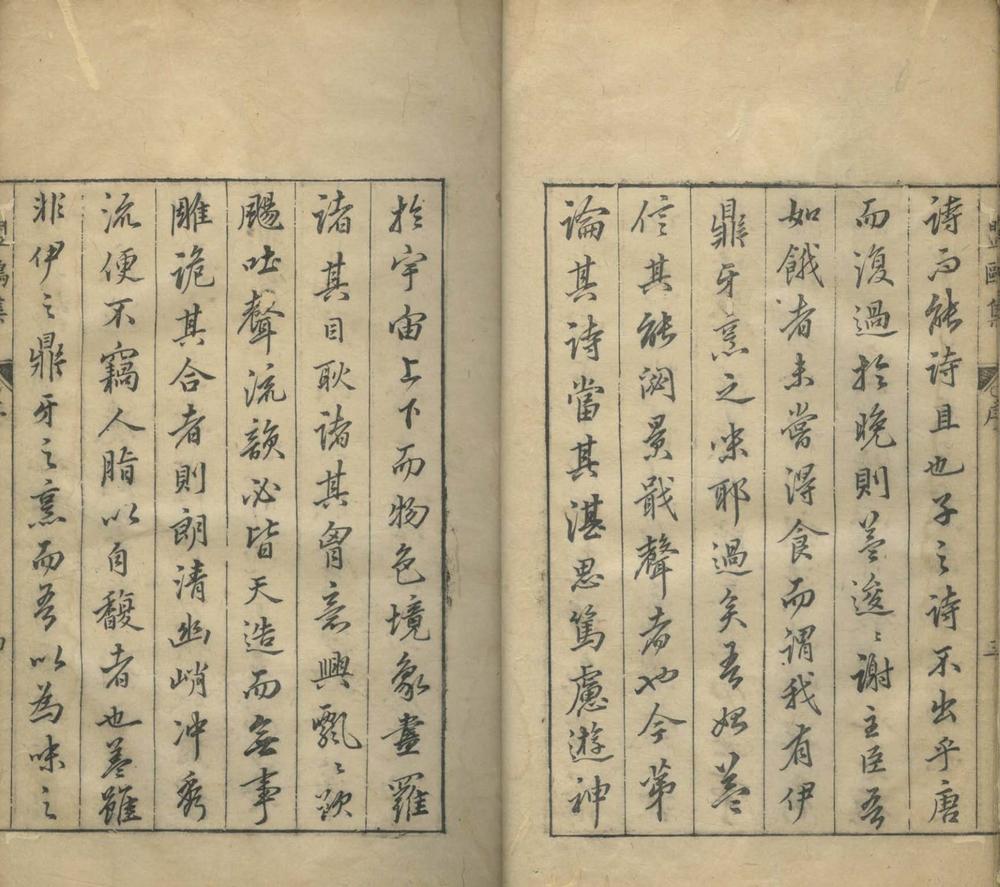 詩而能詩且也子之詩不出乎唐
而復過於晚則蓋逡〻謝主臣吾
如餓者未嘗得食而謂我有伊
鼎牙烹之味耶過矣吾始蓋
信其能洞景戢聲者也今第
論其詩當其湛思篤慮遊神
於宇宙上下而物色境象盡羅
諸其目耿諸其胷意興飄〻欲
颺吐聲流韻必皆天造而無事
雕詭其合者則朗清幽峭沖秀
流便不竊人脂以自馥者也蓋雖
非伊之鼎牙之烹而吾以為味之